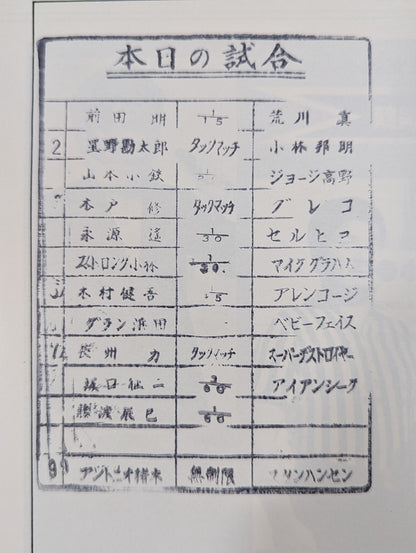 本日の試合
前田 明 1/15 荒川 真
2 星野勘太郎 タッグマッチ 小林邦明
山本小鉄 ジョージ高野
木戸 修 タッグマッチ グレコ
永源 遙 1/30 セルヒオ
ストロング小林 1/30. マイクグラハム
木村健吾 1/15 アレンコージ
グラン浜田 ベビーフェイス
長州 力 タッグマッチ スーパーデストロイヤー
坂口征二 3/60 アイアンシーク
藤波辰巳 1/60
9 アントニオ猪木 無制限 スタンハンセン